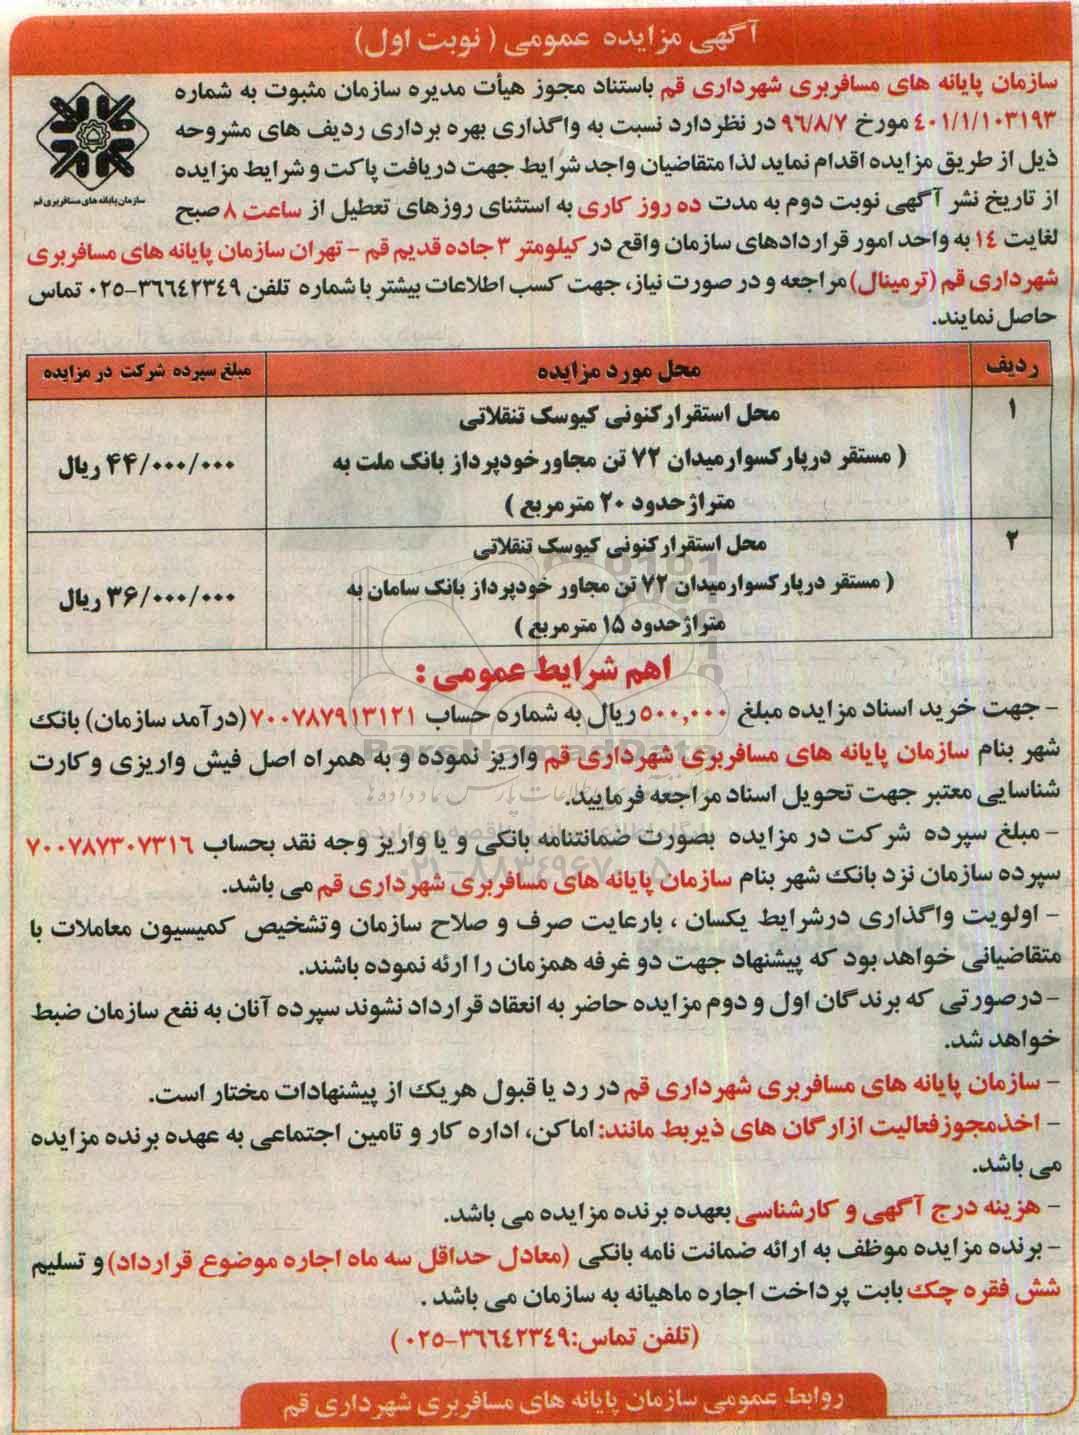 آگهی مزایده عمومی ( نوبت اول)
سازمان پایانه های مسافربری شهرداری قم باستناد مجوز هیأت مدیره سازمان مثبوت به شماره
۴۰۱/۱/۱۰۳۱۹۳ مورخ ۹۶/۸/۷ در نظردارد نسبت به واگذاری بهره برداری ردیف های مشروحه
ذیل از طریق مزایده اقدام نماید لذا متقاضیان واجد شرایط جهت دریافت پاکت و شرایط مزایده
از تاریخ نشر آگهی نوبت دوم به مدت ده روز کاری به استثنای روزهای تعطیل از ساعت ۸ صبح
سازمان پایانه های مسافربری قم
لغایت ۱۴ به واحد امور قراردادهای سازمان واقع در کیلومتر ۳ جاده قدیم قم - تهران سازمان پایانه های مسافربری
شهرداری قم (ترمینال) مراجعه و در صورت نیاز، جهت کسب اطلاعات بیشتر با شماره تلفن ۳۶۶۴۲۳۴۹-۰۲۵ تماس
حاصل نمایند.
ردیف محل مورد مزایده مبلغ سپرده شرکت در مزایده
۱ محل استقرار کنونی کیوسک تنقلاتی
( مستقر در پارکسوار میدان ۷۲ تن مجاور خودپرداز بانک ملت به ۴۴/۰۰۰/۰۰۰ ریال
متراژ حدود ۲۰ مترمربع )
۲ محل استقرار کنونی کیوسک تنقلاتی
( مستقر در پارکسوار میدان ۷۲ تن مجاور خودپرداز بانک سامان به ۳۶/۰۰۰/۰۰۰ ریال
متراژ حدود ۱۵ مترمربع )
اهم شرایط عمومی :
- جهت خرید اسناد مزایده مبلغ ۵۰۰,۰۰۰ ریال به شماره حساب ۷۰۰۷۸۷۹۱۳۱۲۱ (درآمد سازمان) بانک
شهر بنام سازمان پایانه های مسافربری شهرداری قم واریز نموده و به همراه اصل فیش واریزی و کارت
شناسایی معتبر جهت تحویل اسناد مراجعه فرمایید.
- مبلغ سپرده شرکت در مزایده بصورت ضمانتنامه بانکی و یا واریز وجه نقد بحساب ۷۰۰۷۸۷۳۰۷۳۱۶
سپرده سازمان نزد بانک شهر بنام سازمان پایانه های مسافربری شهرداری قم می باشد.
- اولویت واگذاری درشرایط یکسان ، بارعایت صرف و صلاح سازمان وتشخیص کمیسیون معاملات با
متقاضیانی خواهد بود که پیشنهاد جهت دو غرفه همزمان را ارئه نموده باشند.
- درصورتی که برندگان اول و دوم مزایده حاضر به انعقاد قرارداد نشوند سپرده آنان به نفع سازمان ضبط
خواهد شد.
- سازمان پایانه های مسافربری شهرداری قم در رد یا قبول هریک از پیشنهادات مختار است.
- اخذمجوزفعالیت ازارگان های ذیربط مانند: اماکن، اداره کار و تامین اجتماعی به عهده برنده مزایده
می باشد.
- هزینه درج آگهی و کارشناسی بعهده برنده مزایده می باشد.
- برنده مزایده موظف به ارائه ضمانت نامه بانکی (معادل حداقل سه ماه اجاره موضوع قرارداد) و تسلیم
شش فقره چک بابت پرداخت اجاره ماهیانه به سازمان می باشد .
(تلفن تماس:۳۶۶۴۲۳۴۹-۰۲۵)
روابط عمومی سازمان پایانه های مسافربری شهرداری قم